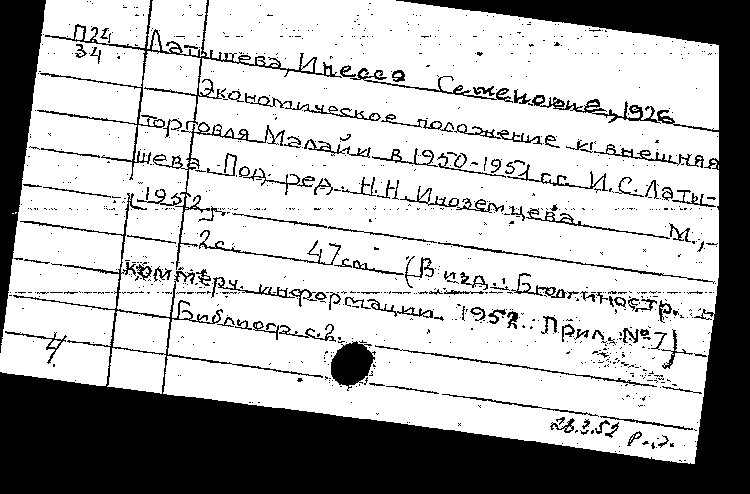 П24
34
Латышева, Инесса Семеновна, 1926
Экономическое положение и внешняя
торговля Малайи в 1950-1951 г.г. И.С. Латы-
шева. Под ред. Н.Н. Иноземцева. М.,
[1952].
2с. 47см (В изд.: Бюл. иностр.
коммерч. информации. 1952. Прил. №7)
Библиогр. с.2.
4
28.3.52